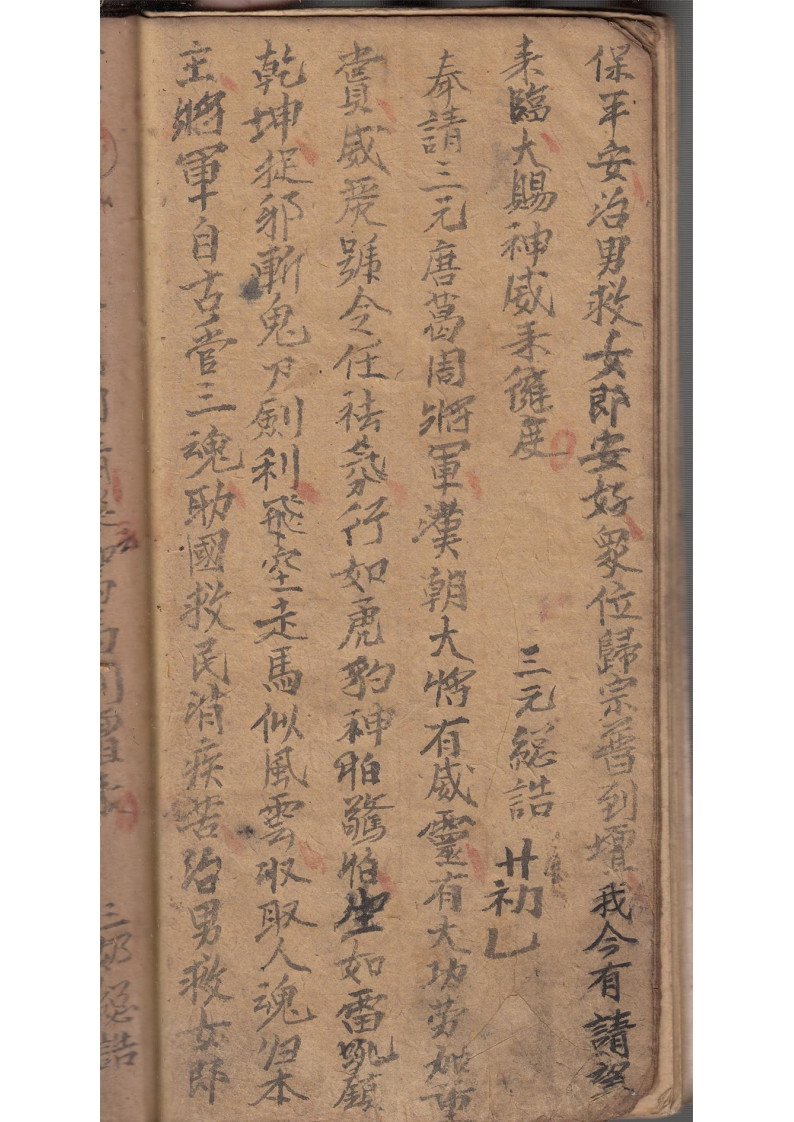 保平安治男救女郎安好衆位歸宗普到壇我今有請望
来臨大賜神威来儺度
三元総誥 廿初乚
奉請三元唐葛周將軍漢朝大將有威靈有大功劳如
賞威嚴號令任祛氛行如虎豹神怕驚怕生如雷吼顛
乾坤捉邪斬鬼刀劍利飛空走馬似風雲收取人魂归本
主將軍自古管三魂助國救民消疾苦治男救女郎
三郎総誥